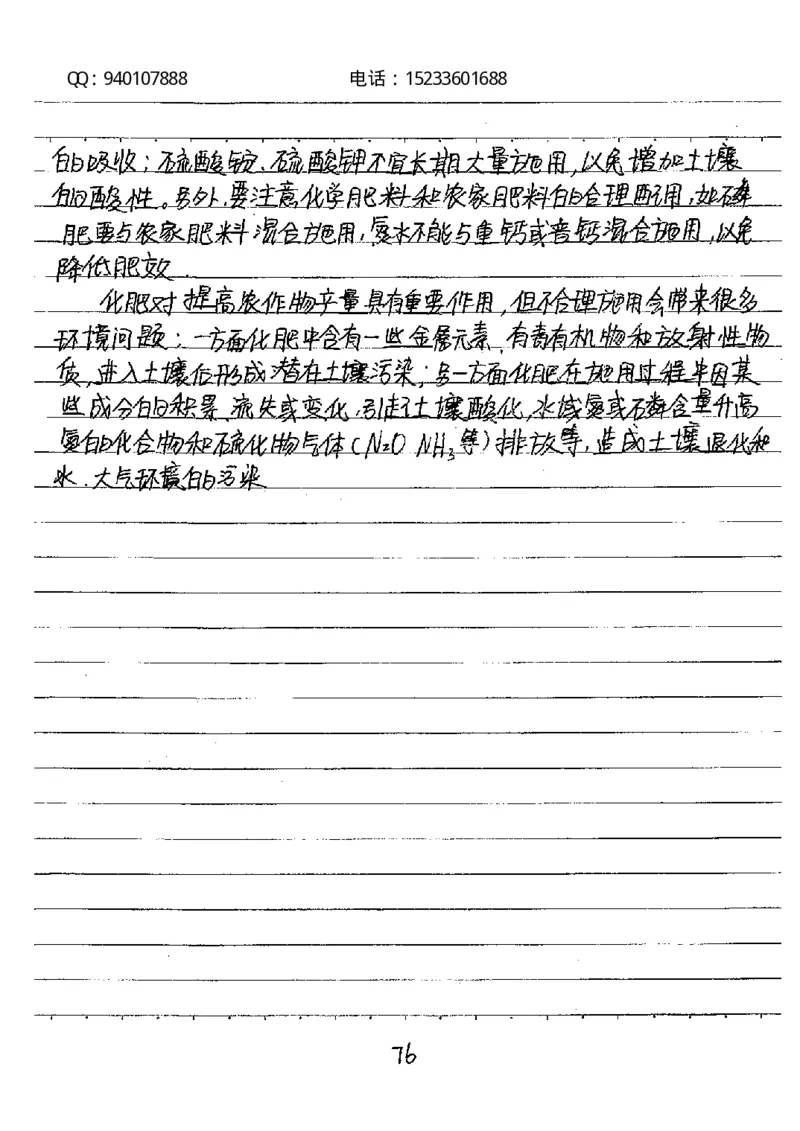 QQ：940107888 电话：15233601688
的吸收；硫酸铵、硫酸钾不宜长期大量施用，以免增加土壤
的酸性。另外，要注意化学肥料和农家肥料的合理配用，如磷
肥要与农家肥料混合施用，氨水不能与重钙或普钙混合施用，以免
降低肥效
化肥对提高农作物产量具有重要作用，但不合理施用会带来很多
环境问题：一方面化肥中含有一些金属元素、有毒有机物和放射性物
质，进入土壤后形成潜在土壤污染；另一方面化肥在施用过程中因某
些成分的积累、流失或变化，引起土壤酸化，水域氮或磷含量升高
氮的化合物和硫化物气体（N₂O NH₃等）排放等，造成土壤退化和
水、大气环境的污染
76